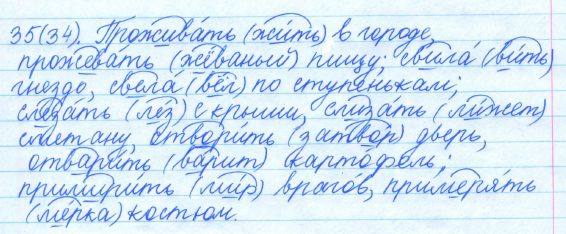 35(34). Прожива́ть (жи́ть) в городе,
прожева́ть (жёваный) пищу; свила́ (ви́ть)
гнездо, свела́ (вёл) по ступенькам;
слеза́ть (лез) с крыши, слиза́ть (ли́жет)
сметану, отвори́ть (затво́р) дверь,
отвари́ть (ва́рит) картофель;
примири́ть (ми́р) враго́в, примеря́ть
(ме́рка) костюм.